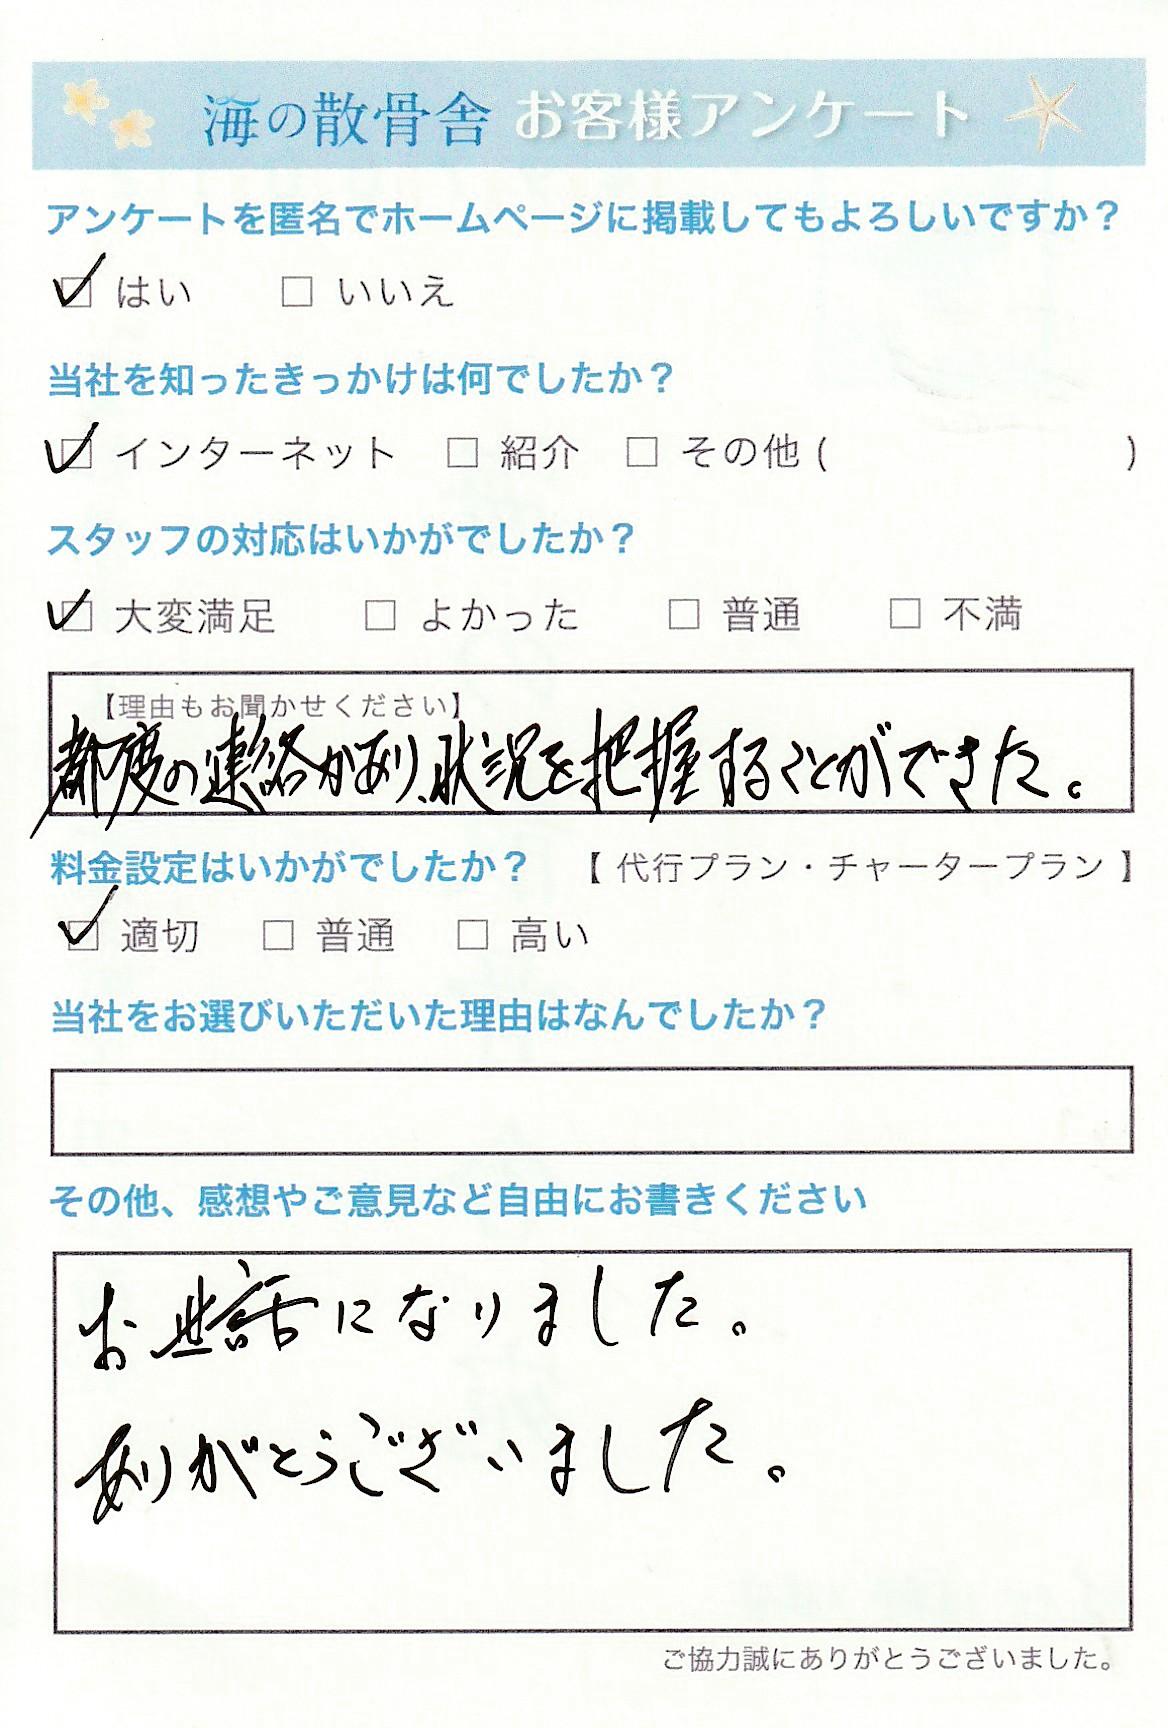 海の散骨舎 お客様アンケート
アンケートを匿名でホームページに掲載してもよろしいですか？
☑ はい □ いいえ
当社を知ったきっかけは何でしたか？
☑ インターネット □ 紹介 □ その他 ( )
スタッフの対応はいかがでしたか？
☑ 大変満足 □ よかった □ 普通 □ 不満
【理由もお聞かせください】
都度の連絡があり、状況を把握することができた。
料金設定はいかがでしたか？ 【 代行プラン・チャータープラン 】
☑ 適切 □ 普通 □ 高い
当社をお選びいただいた理由はなんでしたか？
その他、感想やご意見など自由にお書きください
お世話になりました。
ありがとうございました。
ご協力誠にありがとうございました。